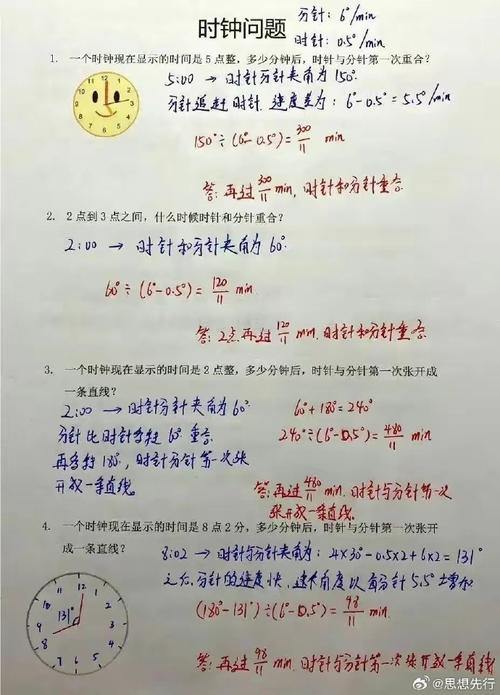 时钟问题
分针：6°/min
时针：0.5°/min
1. 一个时钟现在显示的时间是5点整，多少分钟后，时针与分针第一次重合？
5:00 → 时针分针夹角为150°
分针追赶时针，速度差为：6°-0.5°=5.5°/min
150°÷(6°-0.5°)=300/11 min
答：再过300/11 min，时针和分针重合
2. 2点到3点之间，什么时候时针和分针重合？
2:00 → 时针和分针夹角为60°
60°÷(6°-0.5°)=120/11 min
答：2点再过120/11 min，时针和分针重合
3. 一个时钟现在显示的时间是2点整，多少分钟后，时针与分针第一次张开成
一条直线？
2:00 → 时针分针夹角为60°
分针比时针多转60°重合
再多转180°，时针分针第一次张
开成一条直线
60°+180°=240°
240°÷(6°-0.5°)=480/11 min
答：再过480/11 min，时针与分针第一次
张开成一条直线
4. 一个时钟现在显示的时间是8点2分，多少分钟后，时针与分针第一次张开
成一条直线？
8:02 → 时针与分针夹角为：4×30-0.5×2+6×2=131°
之后，分针的速度快，夹角度以每分针5.5°
(180°-131°)÷(6°-0.5°)=98/11 min
答：再过98/11 min，时针与分针第一次张开成一条直线
12 1 2 3 4 5 6 7 8 9 10 11
131°
@思想先行